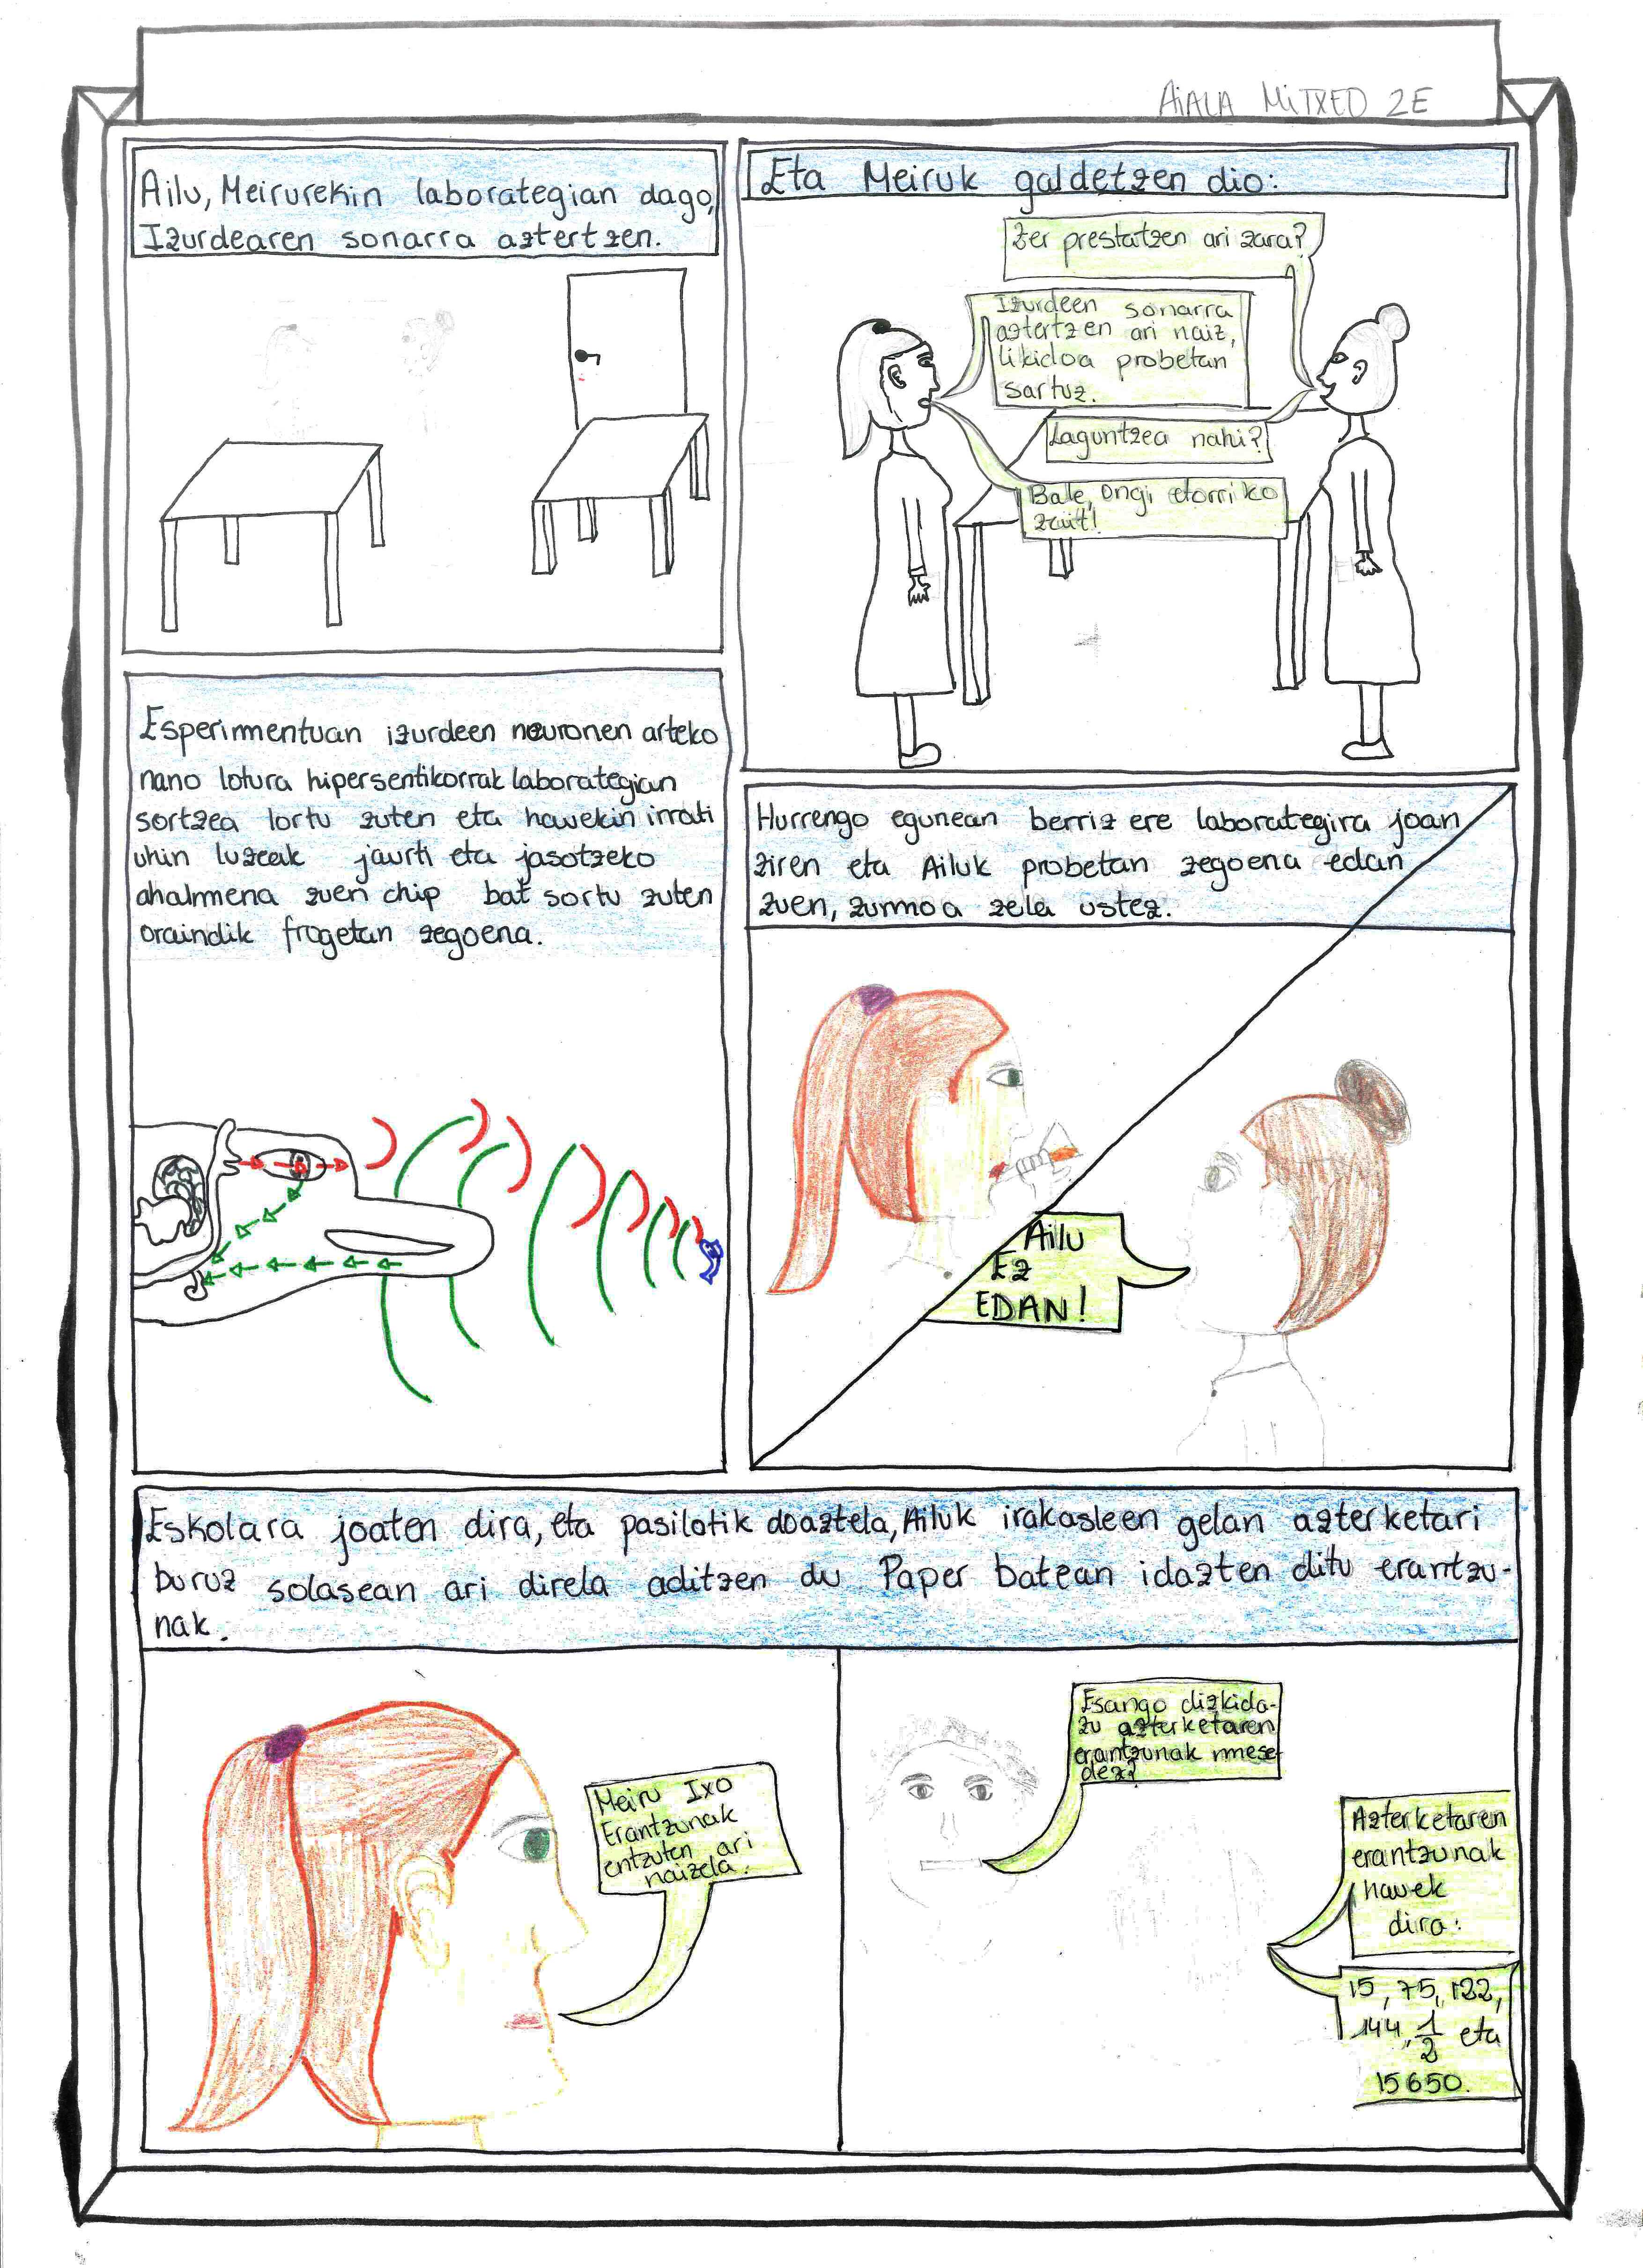 AiALA MiTXEO 2E
Ailu, Meirurekin laborategian dago,
Izurdearen sonarra aztertzen.
Eta Meiruk galdetzen dio:
Zer prestatzen ari zara?
Izurdeen sonarra
aztertzen ari naiz,
likidoa probetan
sartuz.
Laguntzea nahi?
Bale, Ongi etorriko
zait!
Esperimentuan izurdeen neuronen arteko
nano lotura hipersentikorrak laborategian
sortzea lortu zuten eta hauekin irrati
uhin luzeak jaurti eta jasotzeko
ahalmena zuen chip bat sortu zuten
oraindik frogetan zegoena.
Hurrengo egunean berriz ere laborategira joan
ziren eta Ailuk probetan zegoena edan
zuen, zumoa zela ustez.
Ailu
Ez
EDAN!
Eskolara joaten dira, eta pasilotik doaztela, Ailuk irakasleen gelan azterketari
buruz solasean ari direla aditzen du Paper batean idazten ditu erantzu-
nak.
Meiru Ixo
Erantzunak
entzuten ari
naizela.
Esango dizkida-
zu azterketaren
erantzunak mese-
dez?
Azterketaren
erantzunak
hauek
dira:
15, 75, 122,
144, 1/2 eta
15650.